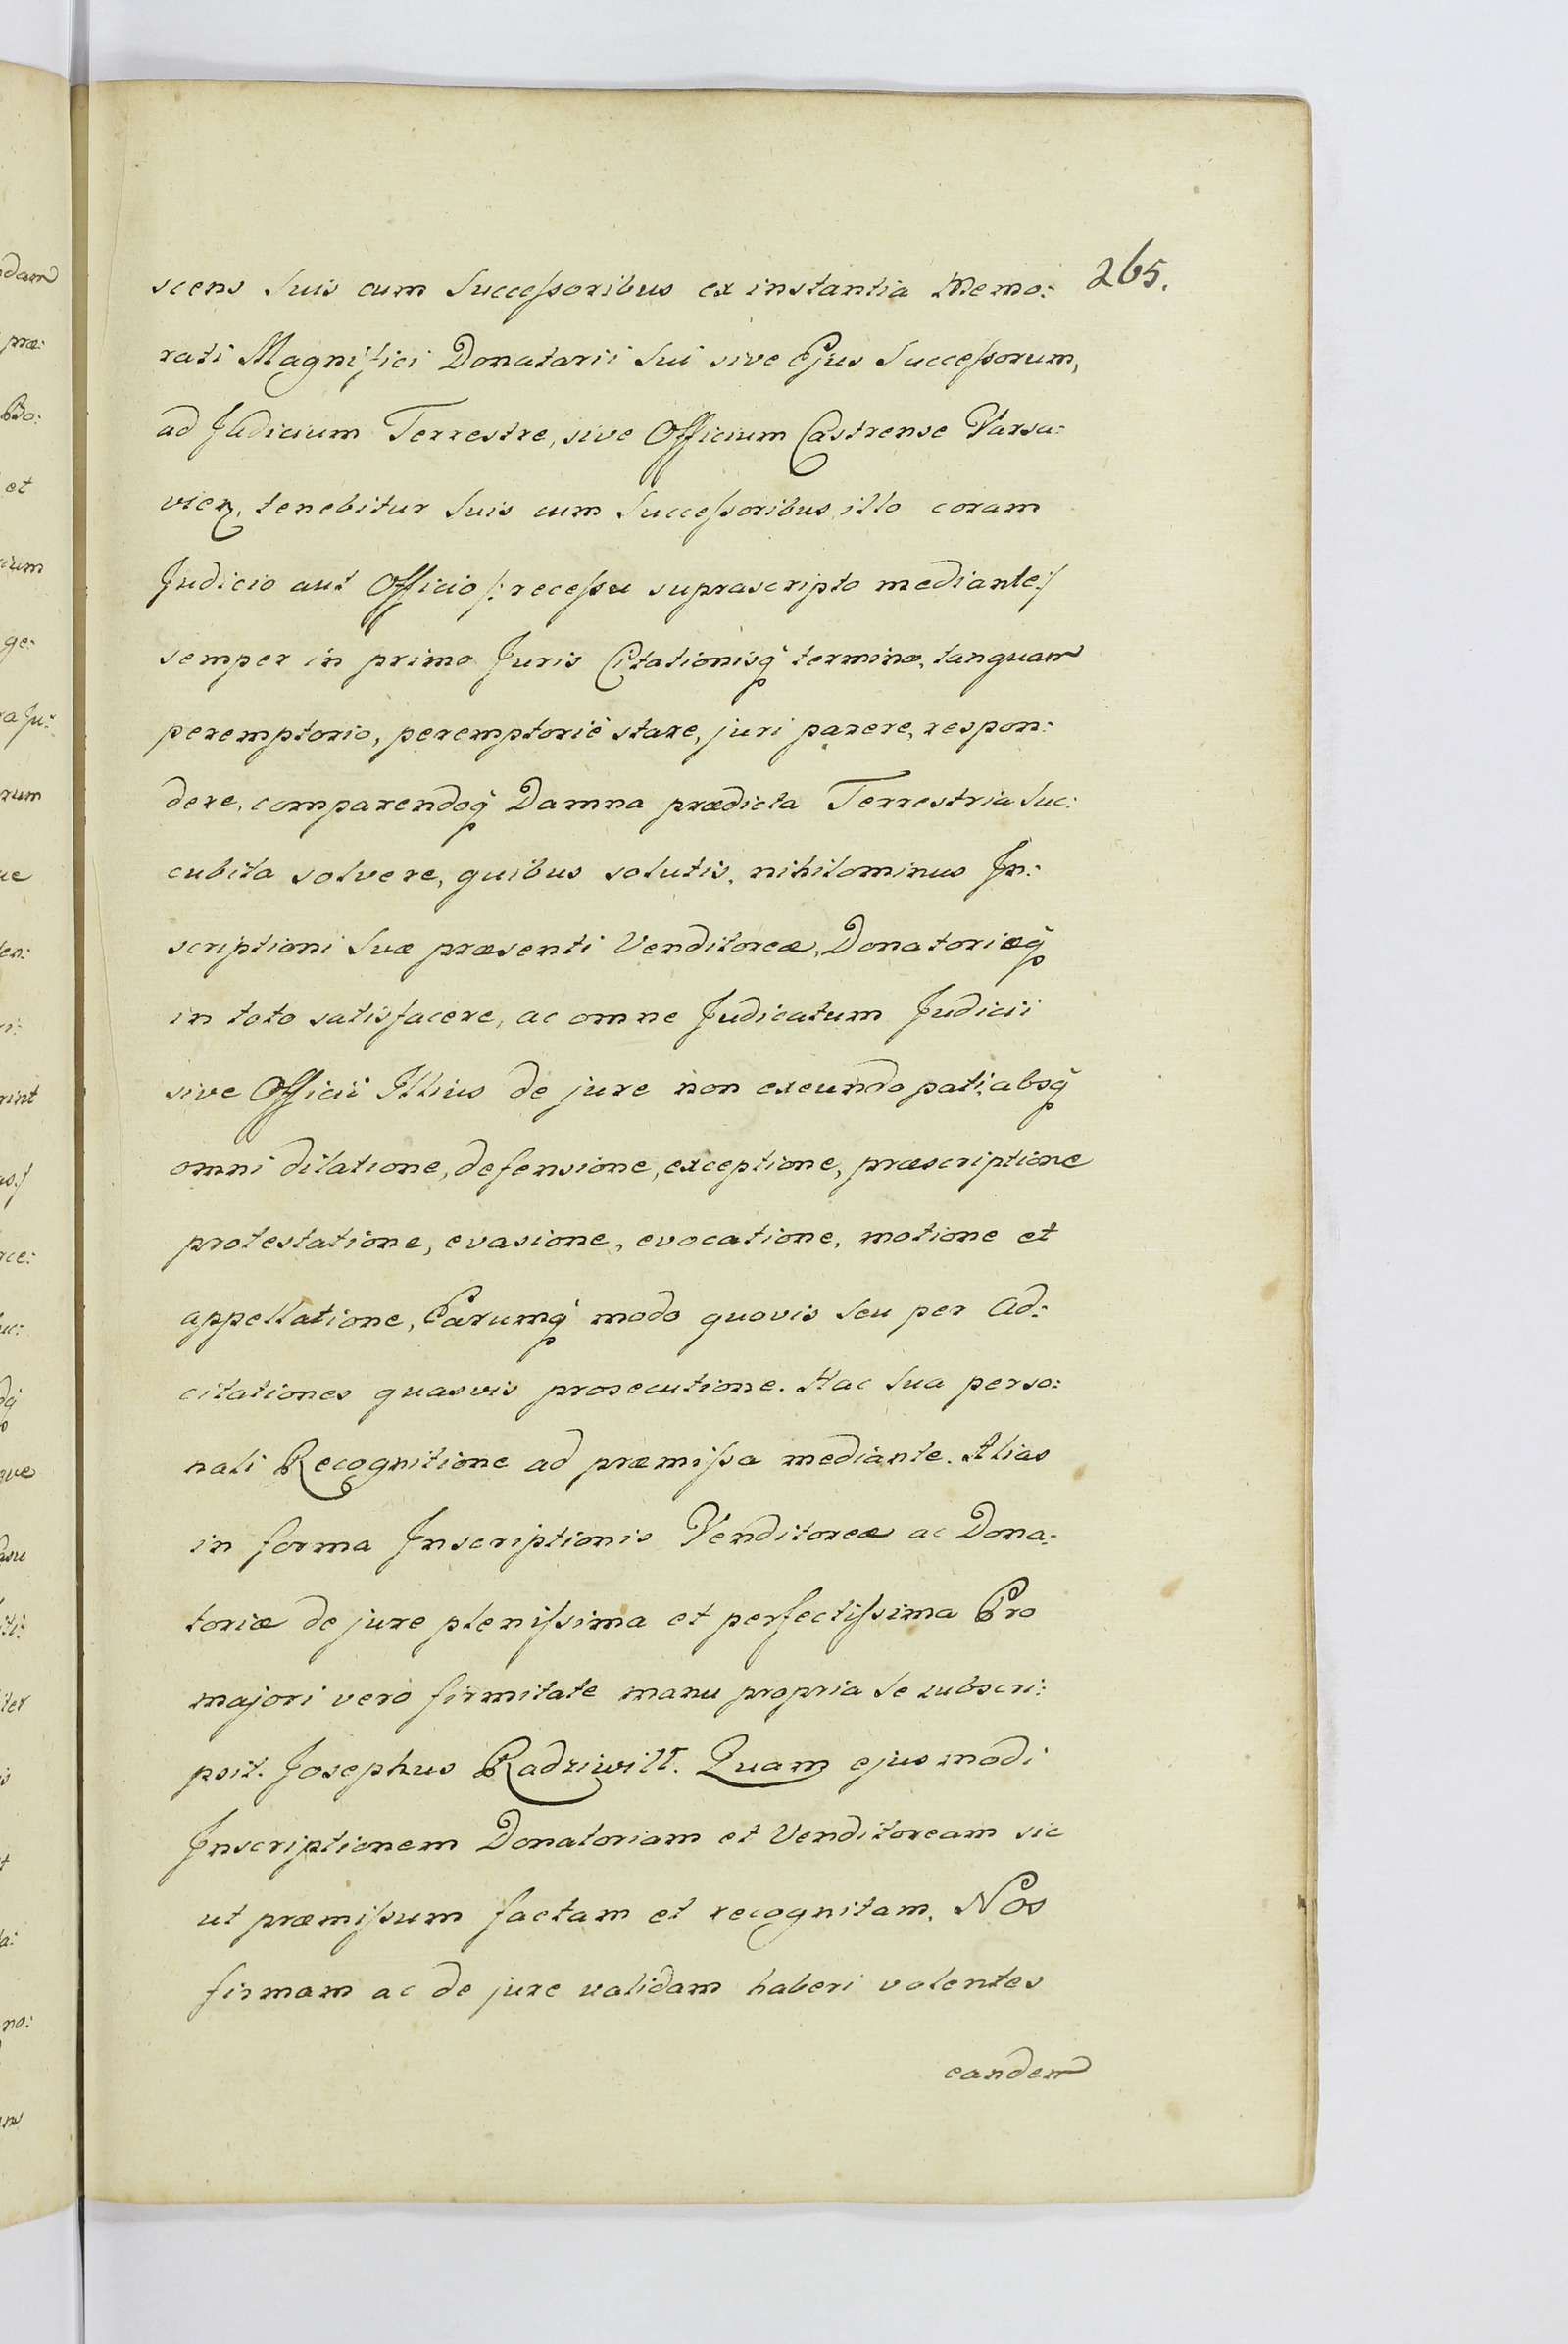 265.
scens Suis cum Succeſsoribus ex instantia Memo:
rati Magnifici Donatarii Sui sive Ejus Succeſsorum,
ad Judicium Terrestre, sive Officium Castrense Varsa:
vien, tenebitur Suis cum Succeſsoribus illo coram
Judicio aut Officio /: receſsu suprascripto mediante:/
semper in primo Juris Citationisq̃ termino, tanquam
peremptorio, peremptoriè stare, juri parere, respon:
dere, comparendoq̃ Damna prædicta Terrestria Suc:
cubita solvere, quibus solutis, nihilominus In:
scriptioni Suæ præsenti Venditoreæ, Donatoriæq̃
in toto satisfacere, ac omne Judicatum Judicii
sive Officii Illius de jure non exeundo pati, absq̃
omni dilatione, defensione, exceptione, præscriptione
protestatione, evasione, evocatione, motione et
appellatione, Earumq̃ modo quovis seu per Ad:
citationes quasvis prosecutione. Hac Sua perso:
nali Recognitione ad præmiſsa mediante. Alias
in forma Inscriptionis Venditoreæ ac Dona:
toriæ de jure pleniſsima et perfectiſsima Pro
majori vero firmitate manu propria Se subscri:
psit. Josephus Radziwiłł. Quam ejusmodi
Inscriptionem Donatoriam et Venditoream sic
ut præmiſsum factam et recognitam, Nos
firmam ac de jure validam haberi volentes
eandem